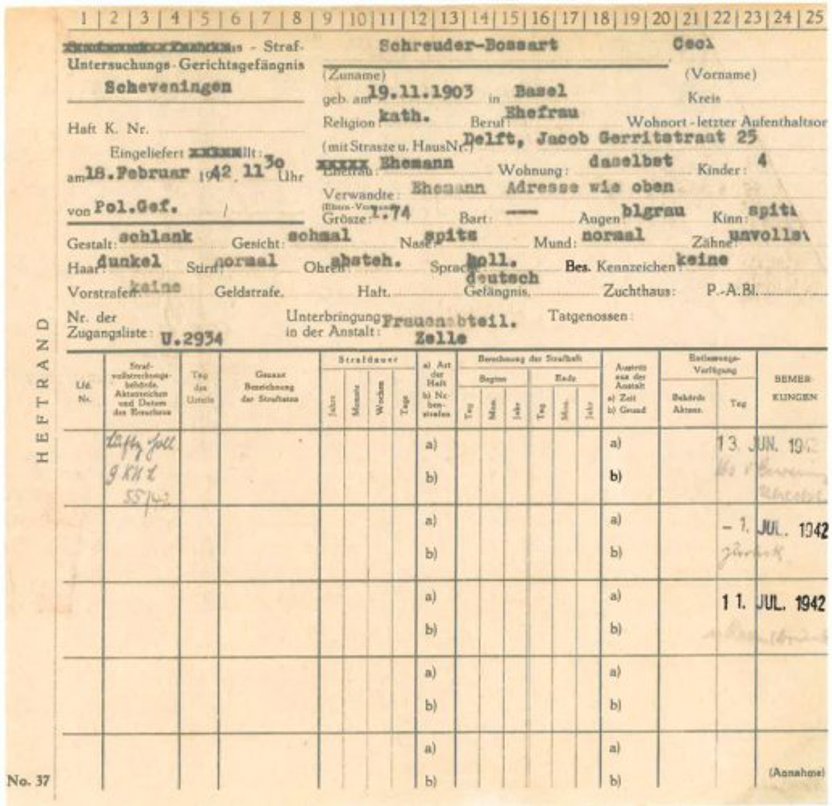 1 2 3 4 5 6 7 8 9 10 11 12 13 14 15 16 17 18 19 20 21 22 23 24 25
- Straf-
Untersuchungs-Gerichtsgefängnis
Scheveningen
Schreuder-Bossart
(Zuname) (Vorname)
geb. am 19.11.1903 in Basel Kreis
Haft K. Nr.
Religion kath. Beruf: Ehefrau Wohnort - letzter Aufenthaltsor
(mit Strasze u. HausNr.) Delft, Jacob Gerritstraat 25
Eingeliefert
Ehemann Wohnung: daselbst Kinder: 4
am 18.Februar 1942, 11 30 Uhr
Verwandte: Ehemann Adresse wie oben
von Pol.Gef. /
Grösze: 1.74 Bart: --- Augen blgrau Kinn:
Gestalt: schlank Gesicht: schmal Nase: spitz Mund: normal Zähne:
Haar dunkel Stirn: normal Ohren: absteh. Sprache: holl. Bes. Kennzeichen: keine
deutsch
Vorstrafen: keine Geldstrafe. Haft. Gefängnis. Zuchthaus: P.-A.Bl.
Nr. der Zugangsliste: U.2934
Unterbringung in der Anstalt: Frauenabteil. Zelle
Tatgenossen:
HEFTRAND
Lfd. Nr.
Straf-
vollstreckungs-
behörde,
Aktenzeichen
und Datum
des Ersuchens
Tag des Urteils
Genaue Bezeichnung der Straftaten
Strafdauer
Jahre Monate Wochen Tage
a) Art der Haft
b) Ne-
ben-
strafen
Berechnung der Strafhaft
Beginn Ende
Tag Mon. Jahr Tag Mon. Jahr
Austritt aus der Anstalt
a) Zeit
b) Grund
Entlassungs-
Verfügung
Behörde Aktenz. Tag
BEMER-
KUNGEN
a) a) 13. JUN.
b) b)
55/42
a) a) - 1. JUL. 1942
b) b) zurück
a) a) 11. JUL. 1942
b) b)
a) a)
b) b)
a) a)
b) b)
No. 37 (Annahme)